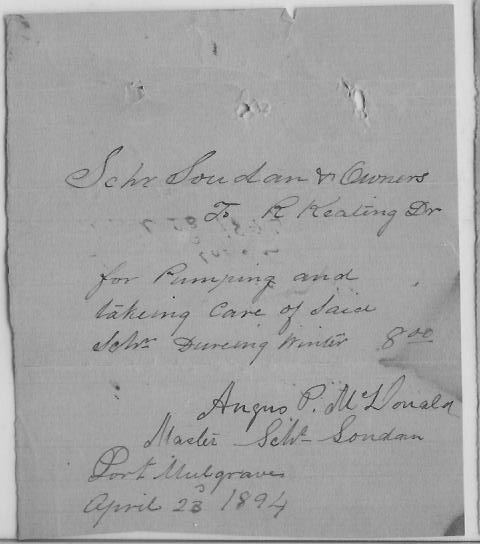 Schr Soudan & Owners
To R Keating Dr
for Pumping and
takeing Care of Said
Schr Dureing Winter 8.00
Angus P. McDonald
Master Schr Soudan
Port Mulgrave
April 23 1894